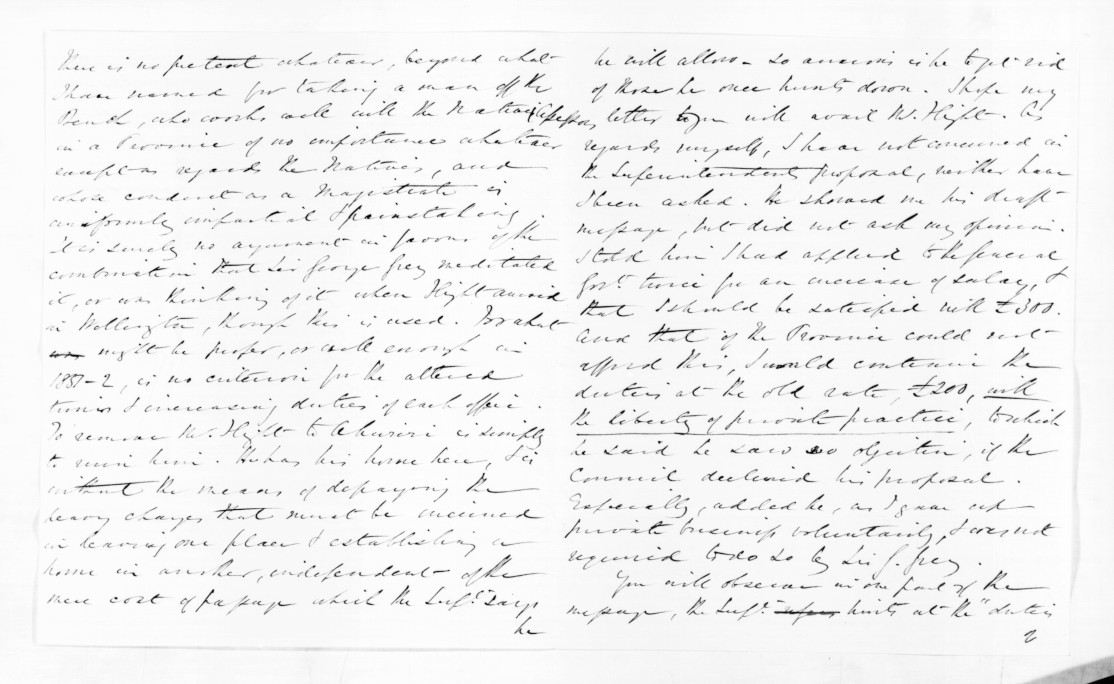 there is no pretext whatever, beyond what
I have named for taking a man off the
Bench, who works well with the Native Assessors,
in a Province of no importance whatever
except as regards the Natives, and
whose conduct as a Magistrate is
uniformly impartial & painstaking.
It is surely no argument in favour of the
combination that Sir George Grey meditated
it, or was thinking of it when Flight arrived
in Wellington, though this is used. For what
might be proper, or well enough in
1851-2, is no criterion for the altered
times & increasing duties of each office.
To remove Mr. Flight to Ahuriri is simply
to ruin him. He has his home here, & is
without the means of defraying the
heavy charges that must be incurred
in leaving one place & establishing a
home in another, independent of the
mere cost of passage which the Supt. says
he
he will allow - so anxious is he to get rid
of those he once hunts down. I hope my
letter to you will avail Mr. Flight. As
regards myself, I have not concurred in
the Superintendents proposal, neither have
I been asked. He showed me his draft
message, but did not ask my opinion.
I told him I had applied to the General
Govt. twice for an increase of salary, &
that I should be satisfied with £300.
And that if the Province could not
afford this, I would continue the
duties at the old rate, £200, with
the liberty of private practice, to which
he said he saw no objection, if the
Council declined his proposal.
Especially, added he, as I gave up
private business voluntarily, & was not
required to do so by Sir G. Grey.
You will observe in one part of the
message, the Supt. hints at the "duties
2